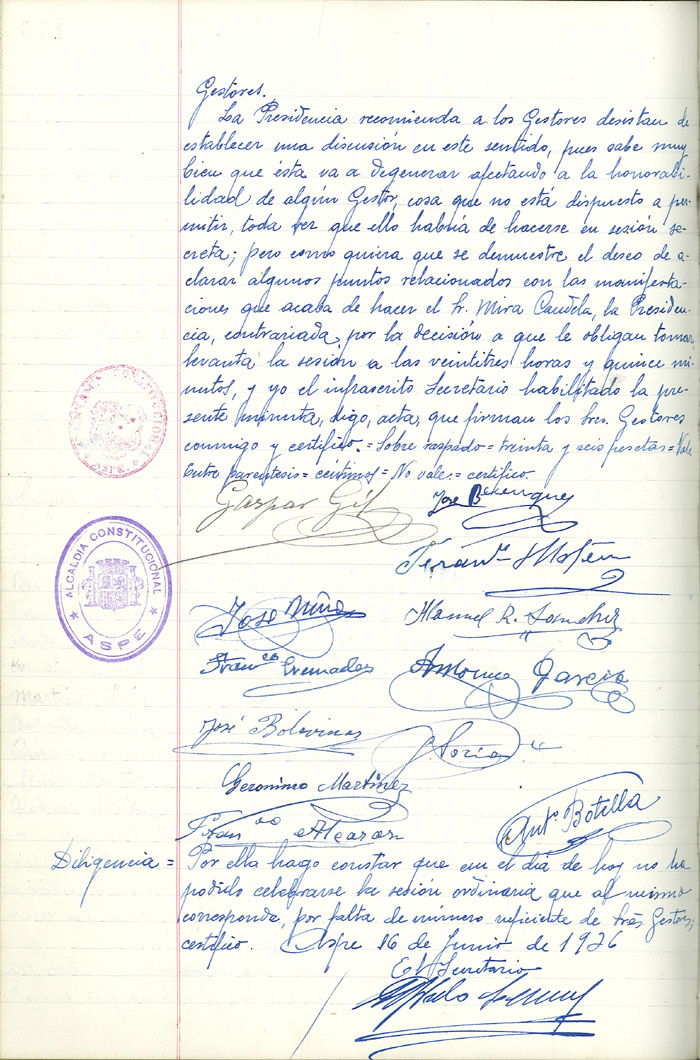 Gestores.
La Presidencia recomienda a los Gestores desistan de
establecer una discusión en este sentido, pues sabe muy
bien que ésta va a degenerar afectando a la honorabi-
lidad de algún Gestor, cosa que no está dispuesto a per-
mitir, toda vez que ello habría de hacerse en sesión se-
creta; pero como quiera que se demuestre el deseo de a-
clarar algunos puntos relacionados con las manifesta-
ciones que acaba de hacer el Sr. Mira Candela, la Presiden-
cia, contrariada por la decisión a que le obligan tomar
levanta la sesión a las veintitres horas y quince mi-
nutos, y yo el infrascrito Secretario habilitado la pre-
sente minuta, digo, acta, que firman los Sres. Gestores
conmigo y certifico.=Sobre raspado=treinta y seis pesetas=Vale
Entre parentesis=centimos=No vale=certifico.
Gaspar Gil
José Berenguer
ALCALDIA CONSTITUCIONAL
ASPE
Manuel R. Sanchez
Antonio García
José Bolavinos
Soria
Geronimo Martinez
Franco Alcaraz
Antº Botella
Diligencia = Por ella hago constar que en el día de hoy no ha
podido celebrarse la sesión ordinaria que al mismo
corresponde, por falta de número suficiente de Srés Gestores;
certifico. Aspe 16 de Junio de 1936
El Secretario